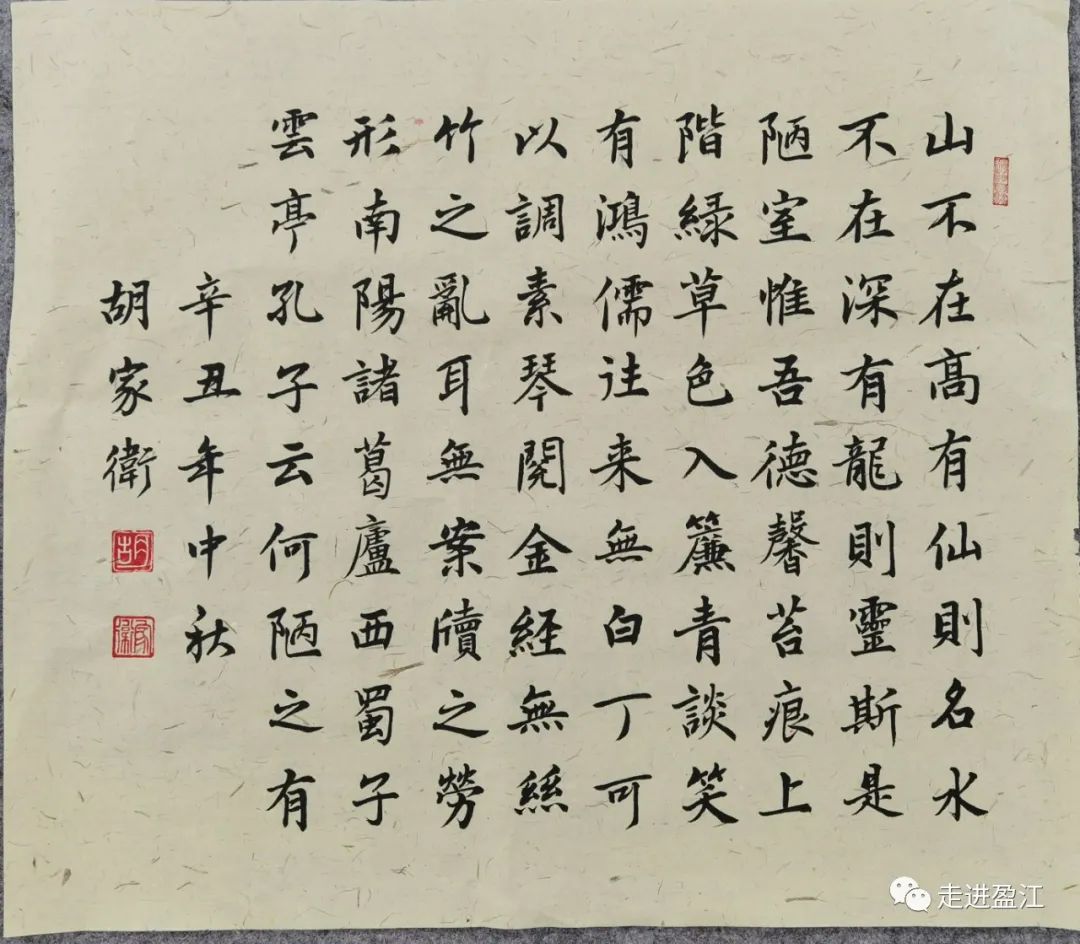 山不在高有仙則名水
不在深有龍則靈斯是
陋室惟吾德馨苔痕上
階緑草色入簾青談笑
有鴻儒往来無白丁可
以調素琴閱金経無絲
竹之亂耳無案牘之勞
形南陽諸葛廬西蜀子
雲亭孔子云何陋之有
辛丑年中秋
胡家衛
走进盈江